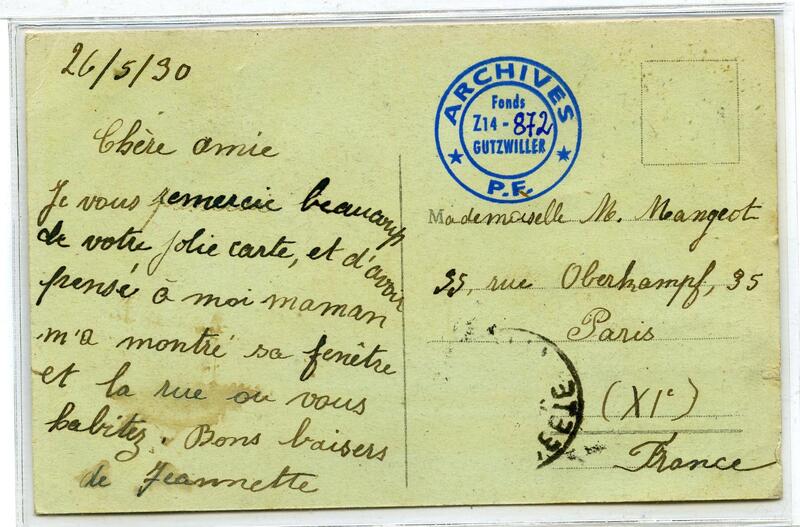 26/5/30
Chère amie
Je vous remercie beaucoup
de votre jolie carte, et d'avoir
pensé à moi maman
m'a montré sa fenêtre
et la rue ou vous
habitez. Bons baisers
de Jeannette
ARCHIVES
Fonds
Z14 - 872
GUTZWILLER
P.F.
Mademoiselle M. Mangeot
35, rue Oberkampf, 35
Paris
(XIe)
France